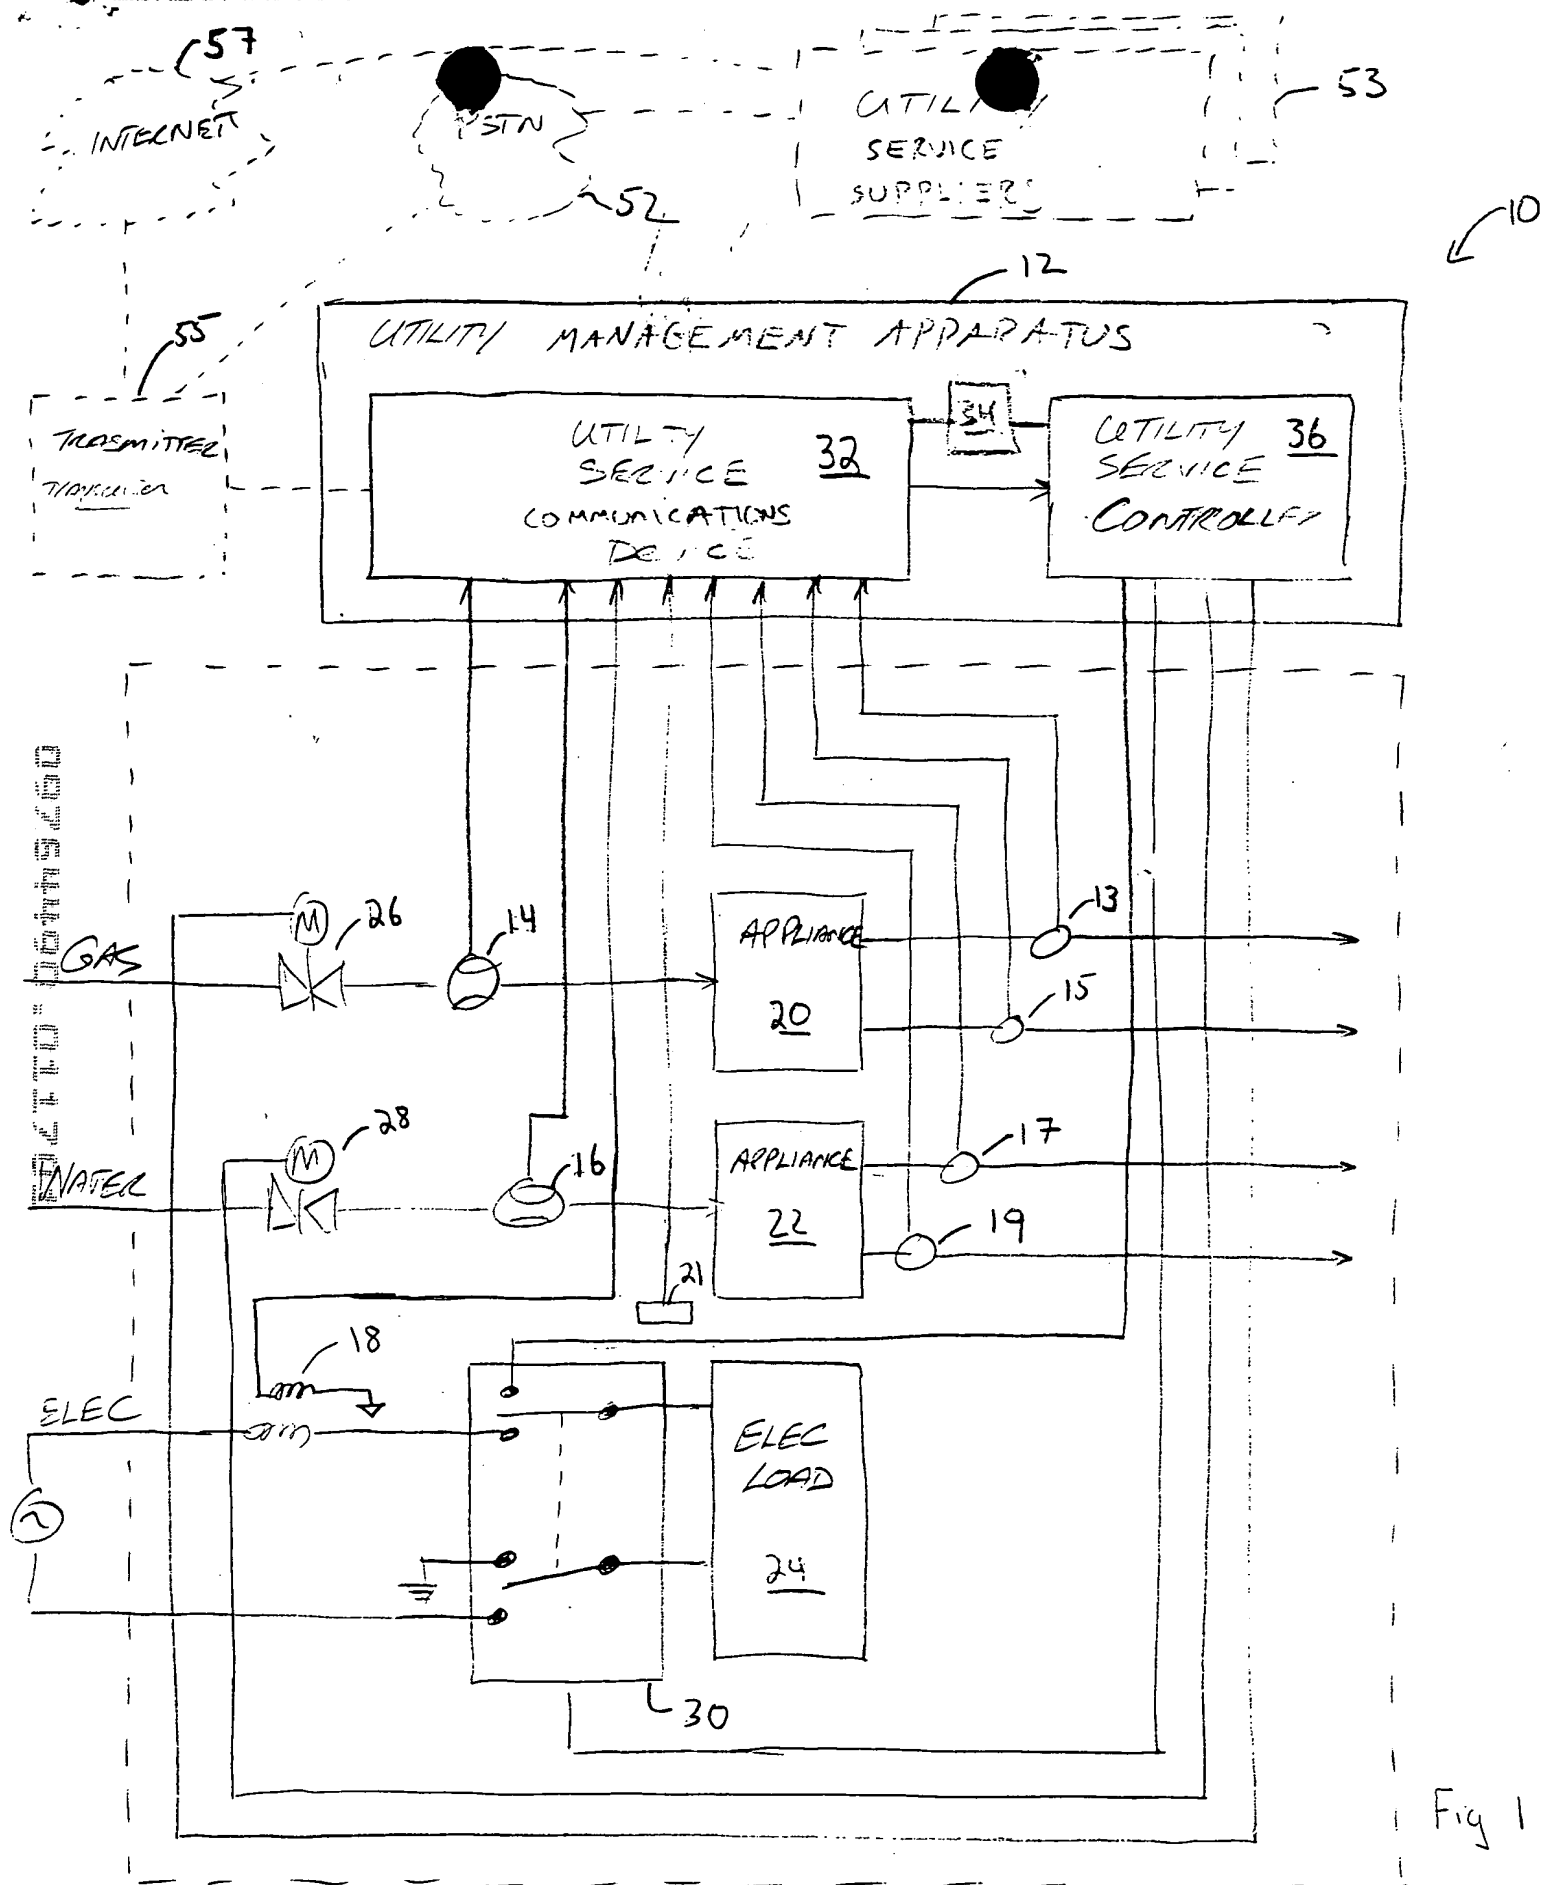 57
INTERNET
PSTN
52
UTILITY
SERVICE
SUPPLIERS
53
10
12
UTILITY MANAGEMENT APPARATUS
55
TRASMITTER
UTILITY
SERVICE
COMMUNICATIONS
DEVICE
32
34
UTILITY
SERVICE
CONTROLLER
36
GAS
M
26
14
APPLIANCE
20
13
15
WATER
M
28
16
APPLIANCE
22
17
19
21
18
ELEC
~
ELEC
LOAD
24
30
Fig 1